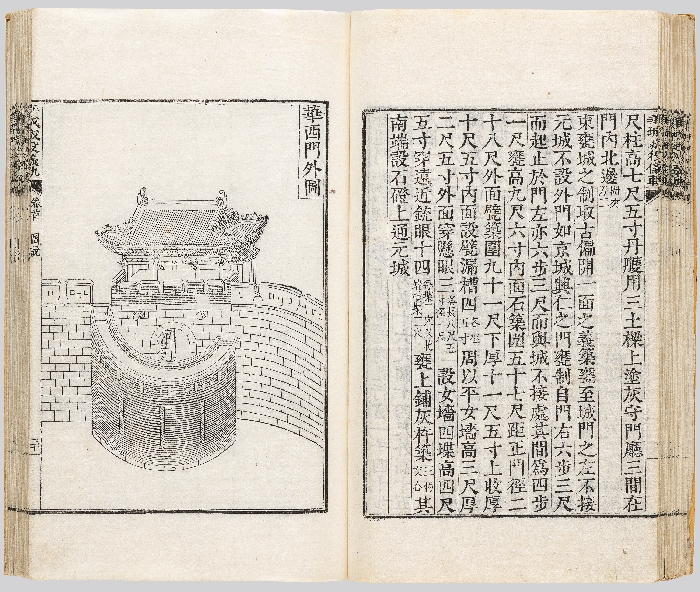 尺柱高七尺五寸丹雘用三土樑上塗灰守門廳三間在
門內北邊
東甕城之制取古偏開一面之義築甕至城門之左不接
元城不設外門如京城興仁之門甕制自門右六步三尺
而起止於門左亦六步三尺而與城不接處其間爲四步
一尺甕高九尺六寸內面石築圍五十七尺距正門徑二
十八尺外面甓築圍九十一尺下厚十一尺五寸上收厚
十尺五寸內面設甓漏槽四 周以平女墻高三尺厚
二尺五寸外面穿懸眼三 設女墻四堞高四尺
五寸穿遠近銃眼十四 甕上鋪灰杵築 其
南端設石磴上通元城
華西門外圖
卷首 圖說